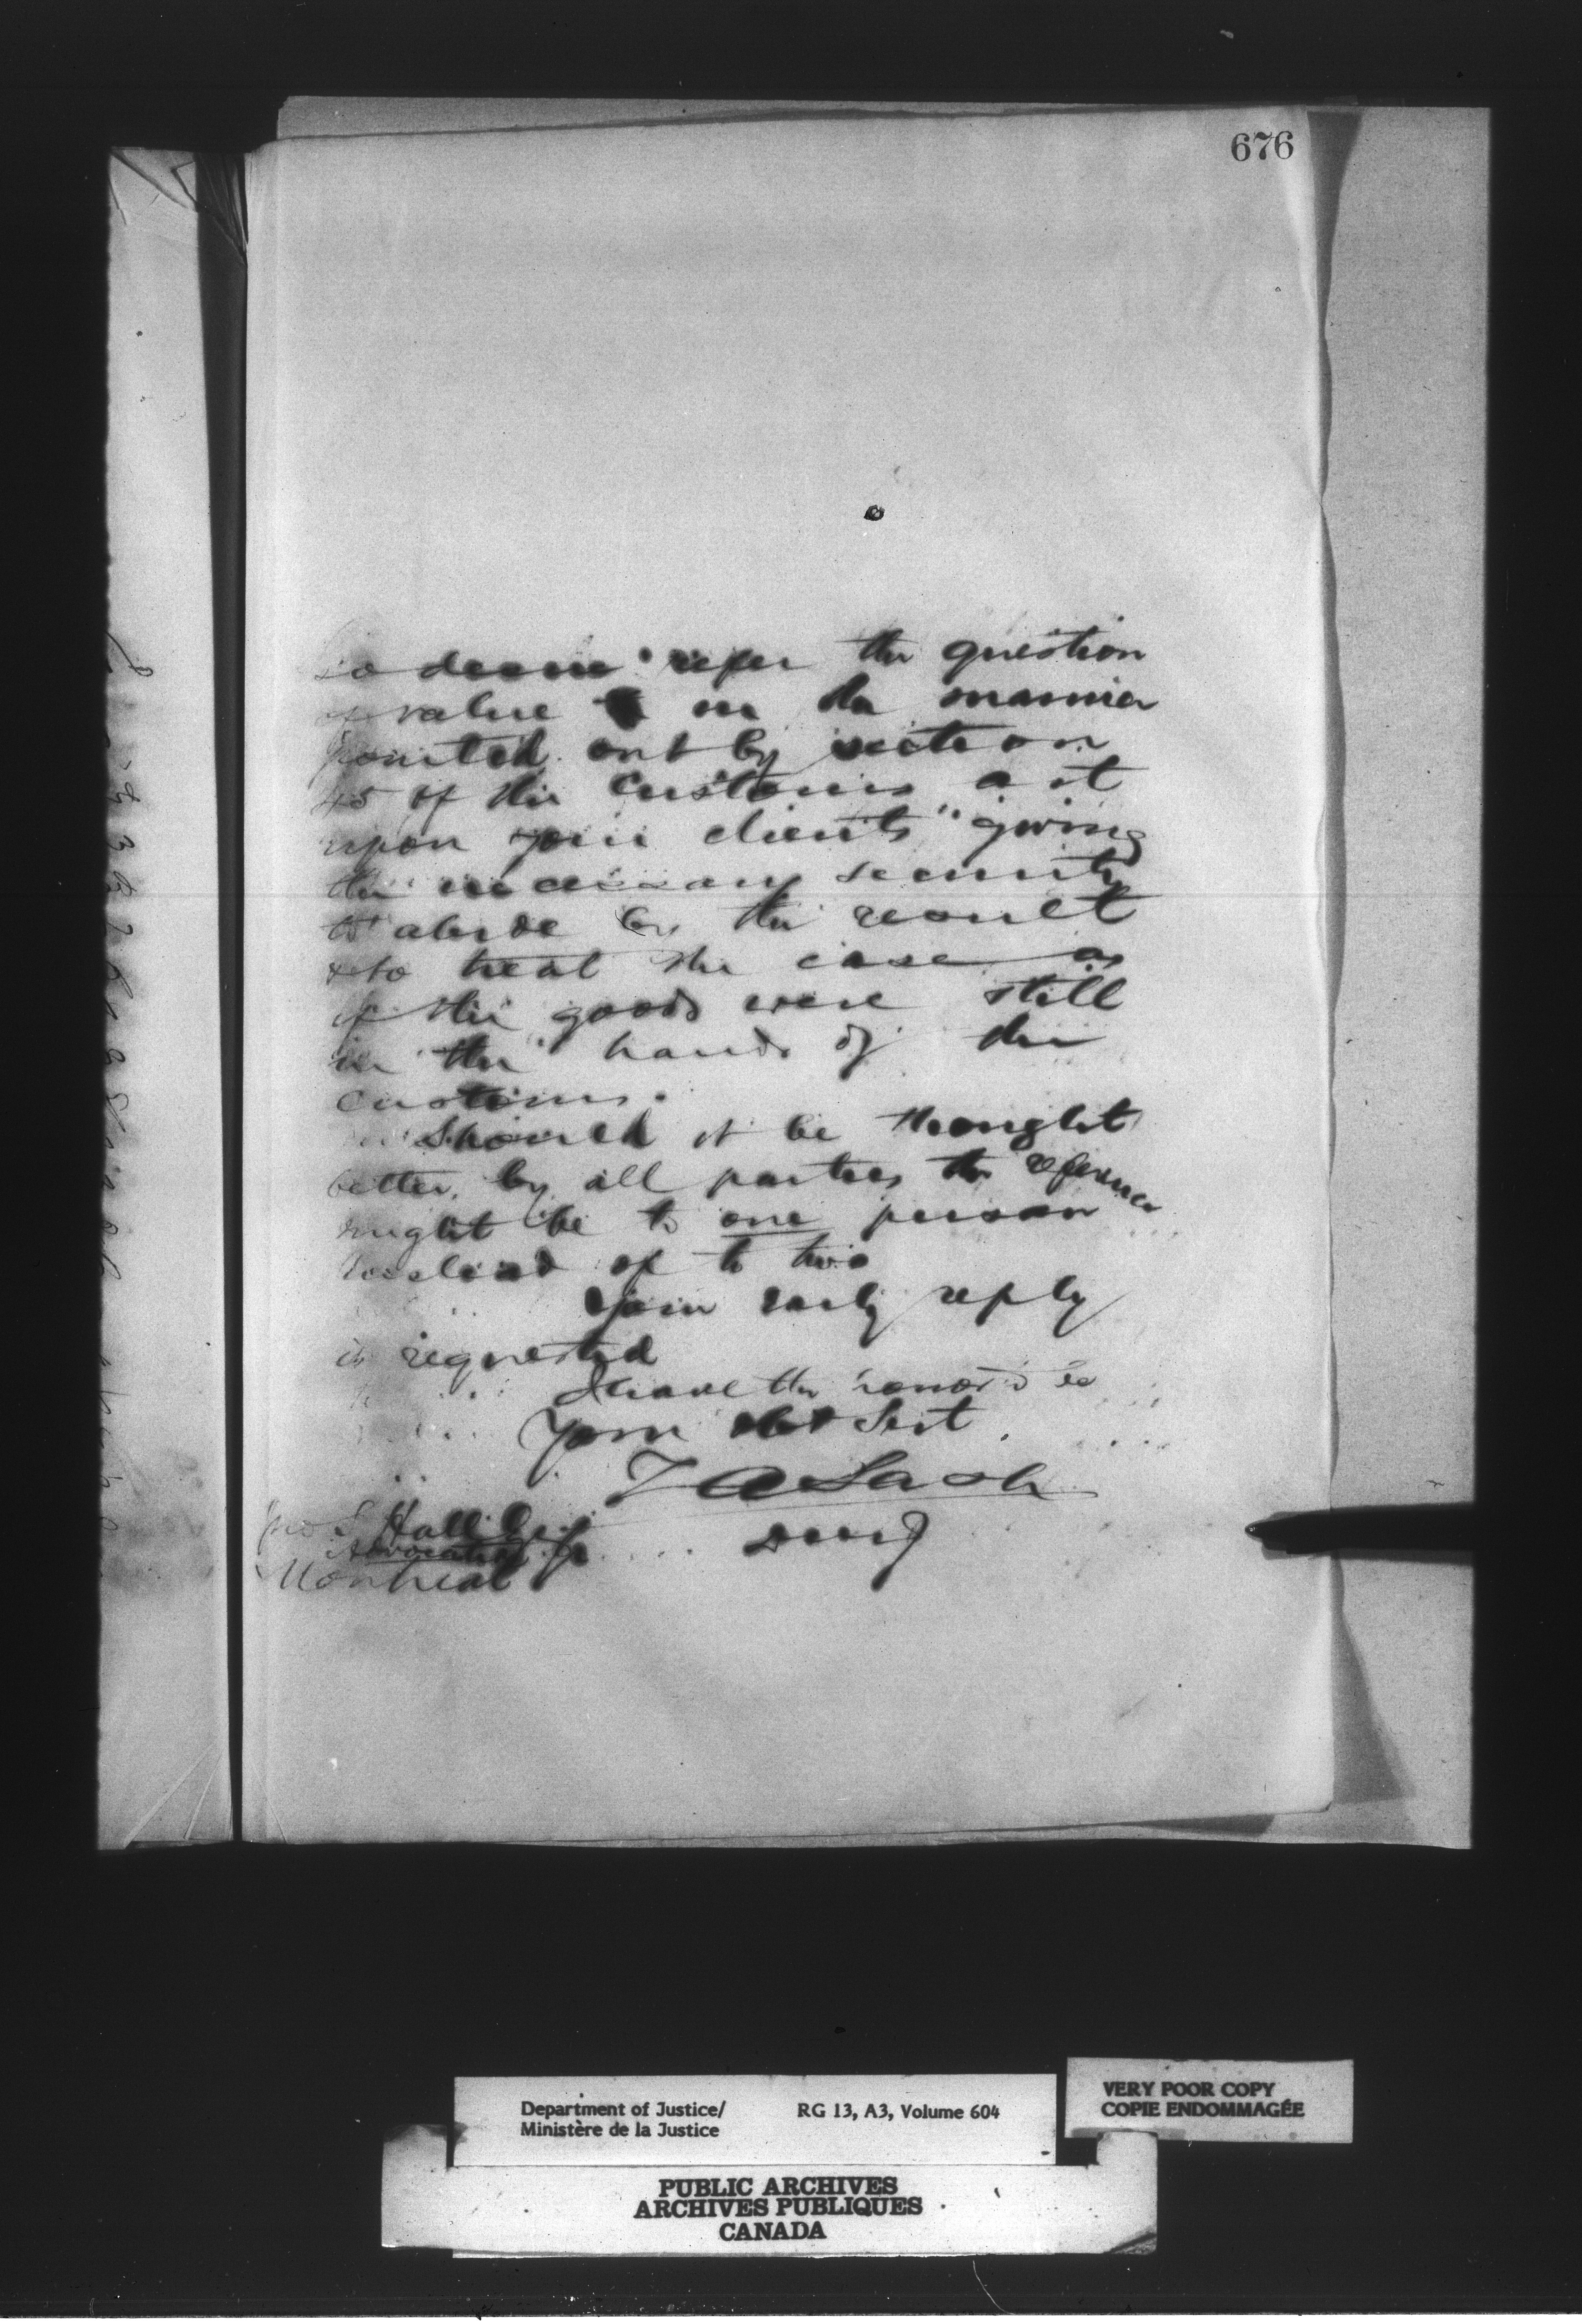 676
so desire refer the question
of value in the manner
pointed out by section
45 of the Customs act
upon your clients giving
the necessary security
to abide by the result
& to treat the case as
if the goods were still
in the hands of the
customs.
Should it be thought
better by all parties the reference
might be to one person
instead of to two
Your early reply
is requested
I have the honor to be
Your Obt Sert
Z A Lash
DMJ
Jno S Hall Esq Jr
Advocate
Montreal
Department of Justice/
Ministère de la Justice
RG 13, A3, Volume 604
VERY POOR COPY
COPIE ENDOMMAGÉE
PUBLIC ARCHIVES
ARCHIVES PUBLIQUES
CANADA